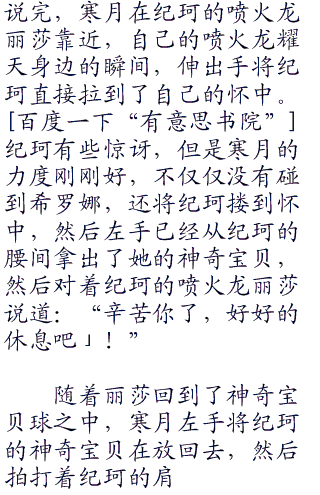 说完，寒月在纪珂的喷火龙
丽莎靠近，自己的喷火龙耀
天身边的瞬间，伸出手将纪
珂直接拉到了自己的怀中。
[百度一下“有意思书院”]
纪珂有些惊讶，但是寒月的
力度刚刚好，不仅仅没有碰
到希罗娜，还将纪珂搂到怀
中，然后左手已经从纪珂的
腰间拿出了她的神奇宝贝，
然后对着纪珂的喷火龙丽莎
说道：“辛苦你了，好好的
休息吧」！”
随着丽莎回到了神奇宝
贝球之中，寒月左手将纪珂
的神奇宝贝在放回去，然后
拍打着纪珂的肩